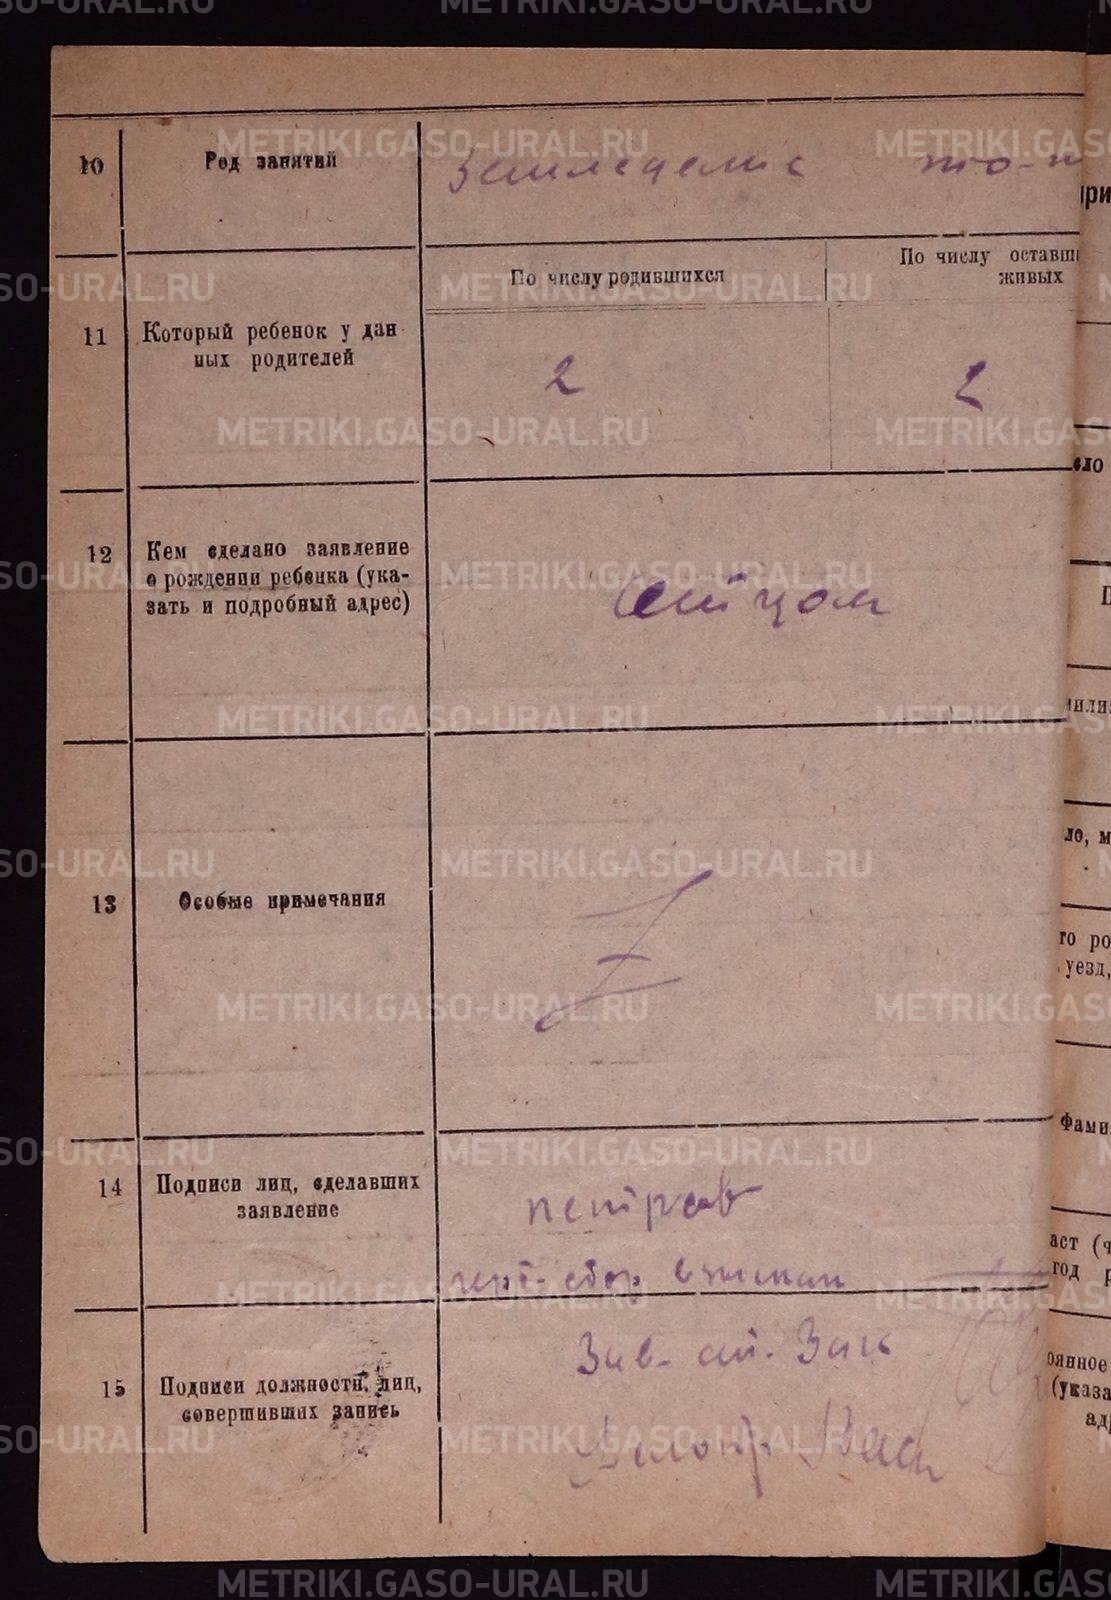 10 Род занятий Земледелие то-
11 Который ребенок у дан
ных родителей
По числу родившихся
По числу оставши
живых
2
2
12 Кем сделано заявление
о рождении ребенка (ука-
зать и подробный адрес)
отцом
13 Особые примечания
Z
14 Подписи лиц, сделавших
заявление
Петров
герб-сбор взыскан
15 Подписи должностн. лиц,
совершивших запись
Зав. ст. Загс
при
ело
П
или
ло, м
го ро
уезд,
Фами
аст (ч
год р
оянное
(указа
адр
METRIKI.GASO-URAL.RU